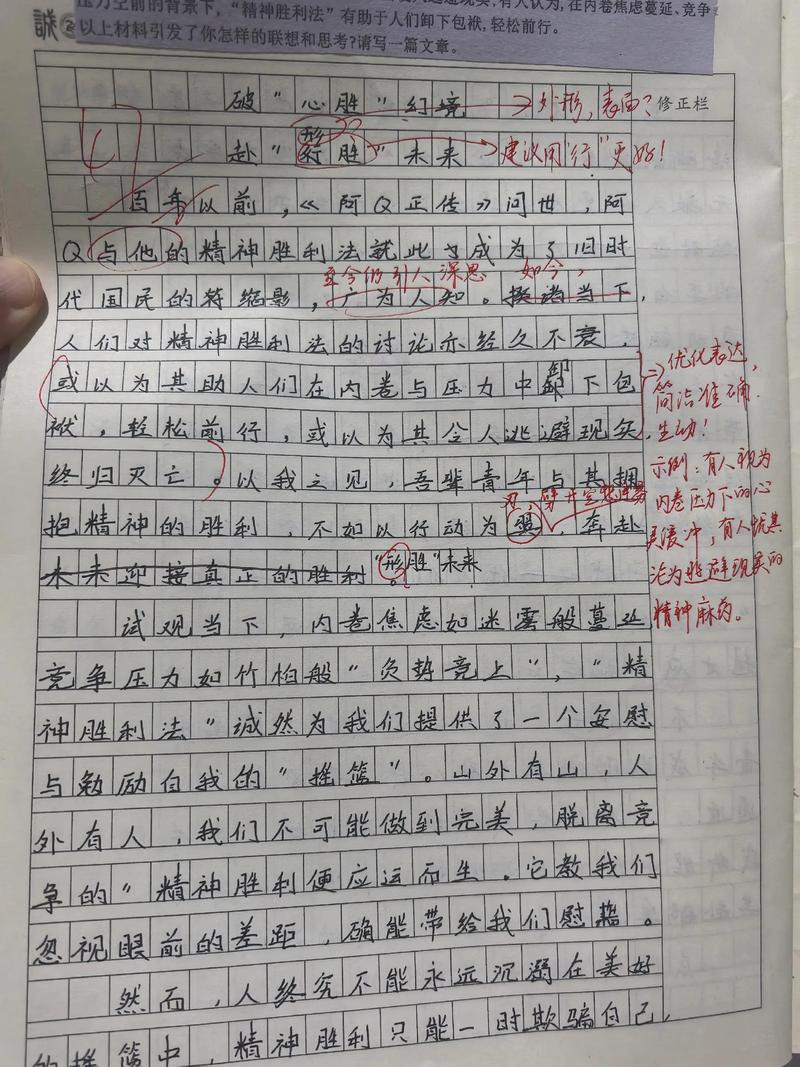 压力空前的背景下,“精神胜利法”有助于人们卸下包袱,轻松前行。
以上材料引发了你怎样的联想和思考?请写一篇文章。
誠
修正栏
破“心胜”幻境
外形,表面?
赴“形胜”未来
建议用“行”更好!
百年以前,《阿Q正传》问世,阿
Q与他的精神胜利法就此成为了旧时
至今仍引人深思 如今,
代国民的缩影,广为人知。揆诸当下,
人们对精神胜利法的讨论亦经久不衰,
或以为其助人们在内卷与压力中卸下包
袱,轻松前行,或以为其令人逃避现实,
终归灭亡。以我之见,吾辈青年与其拥
抱精神的胜利,不如以行动为翼,奔赴
未来迎接真正的胜利“形胜”未来。
优化表达,
简洁准确.
生动!
示例:有人视为
内卷压力下的心
灵缓冲,有人忧其
沦为逃避现实的
精神麻药。
试观当下,内卷焦虑如迷雾般蔓延
竞争压力如竹柏般“负势竞上”,“精
神胜利法”诚然为我们提供了一个安慰
与勉励自我的“摇篮”。山外有山,人
外有人,我们不可能做到完美,脱离竞
争的“精神胜利便应运而生。它教我们
忽视眼前的差距,确能带给我们慰藉。
然而,人终究不能永远沉溺在美好
的摇篮中,精神胜利只能一时欺骗自己,